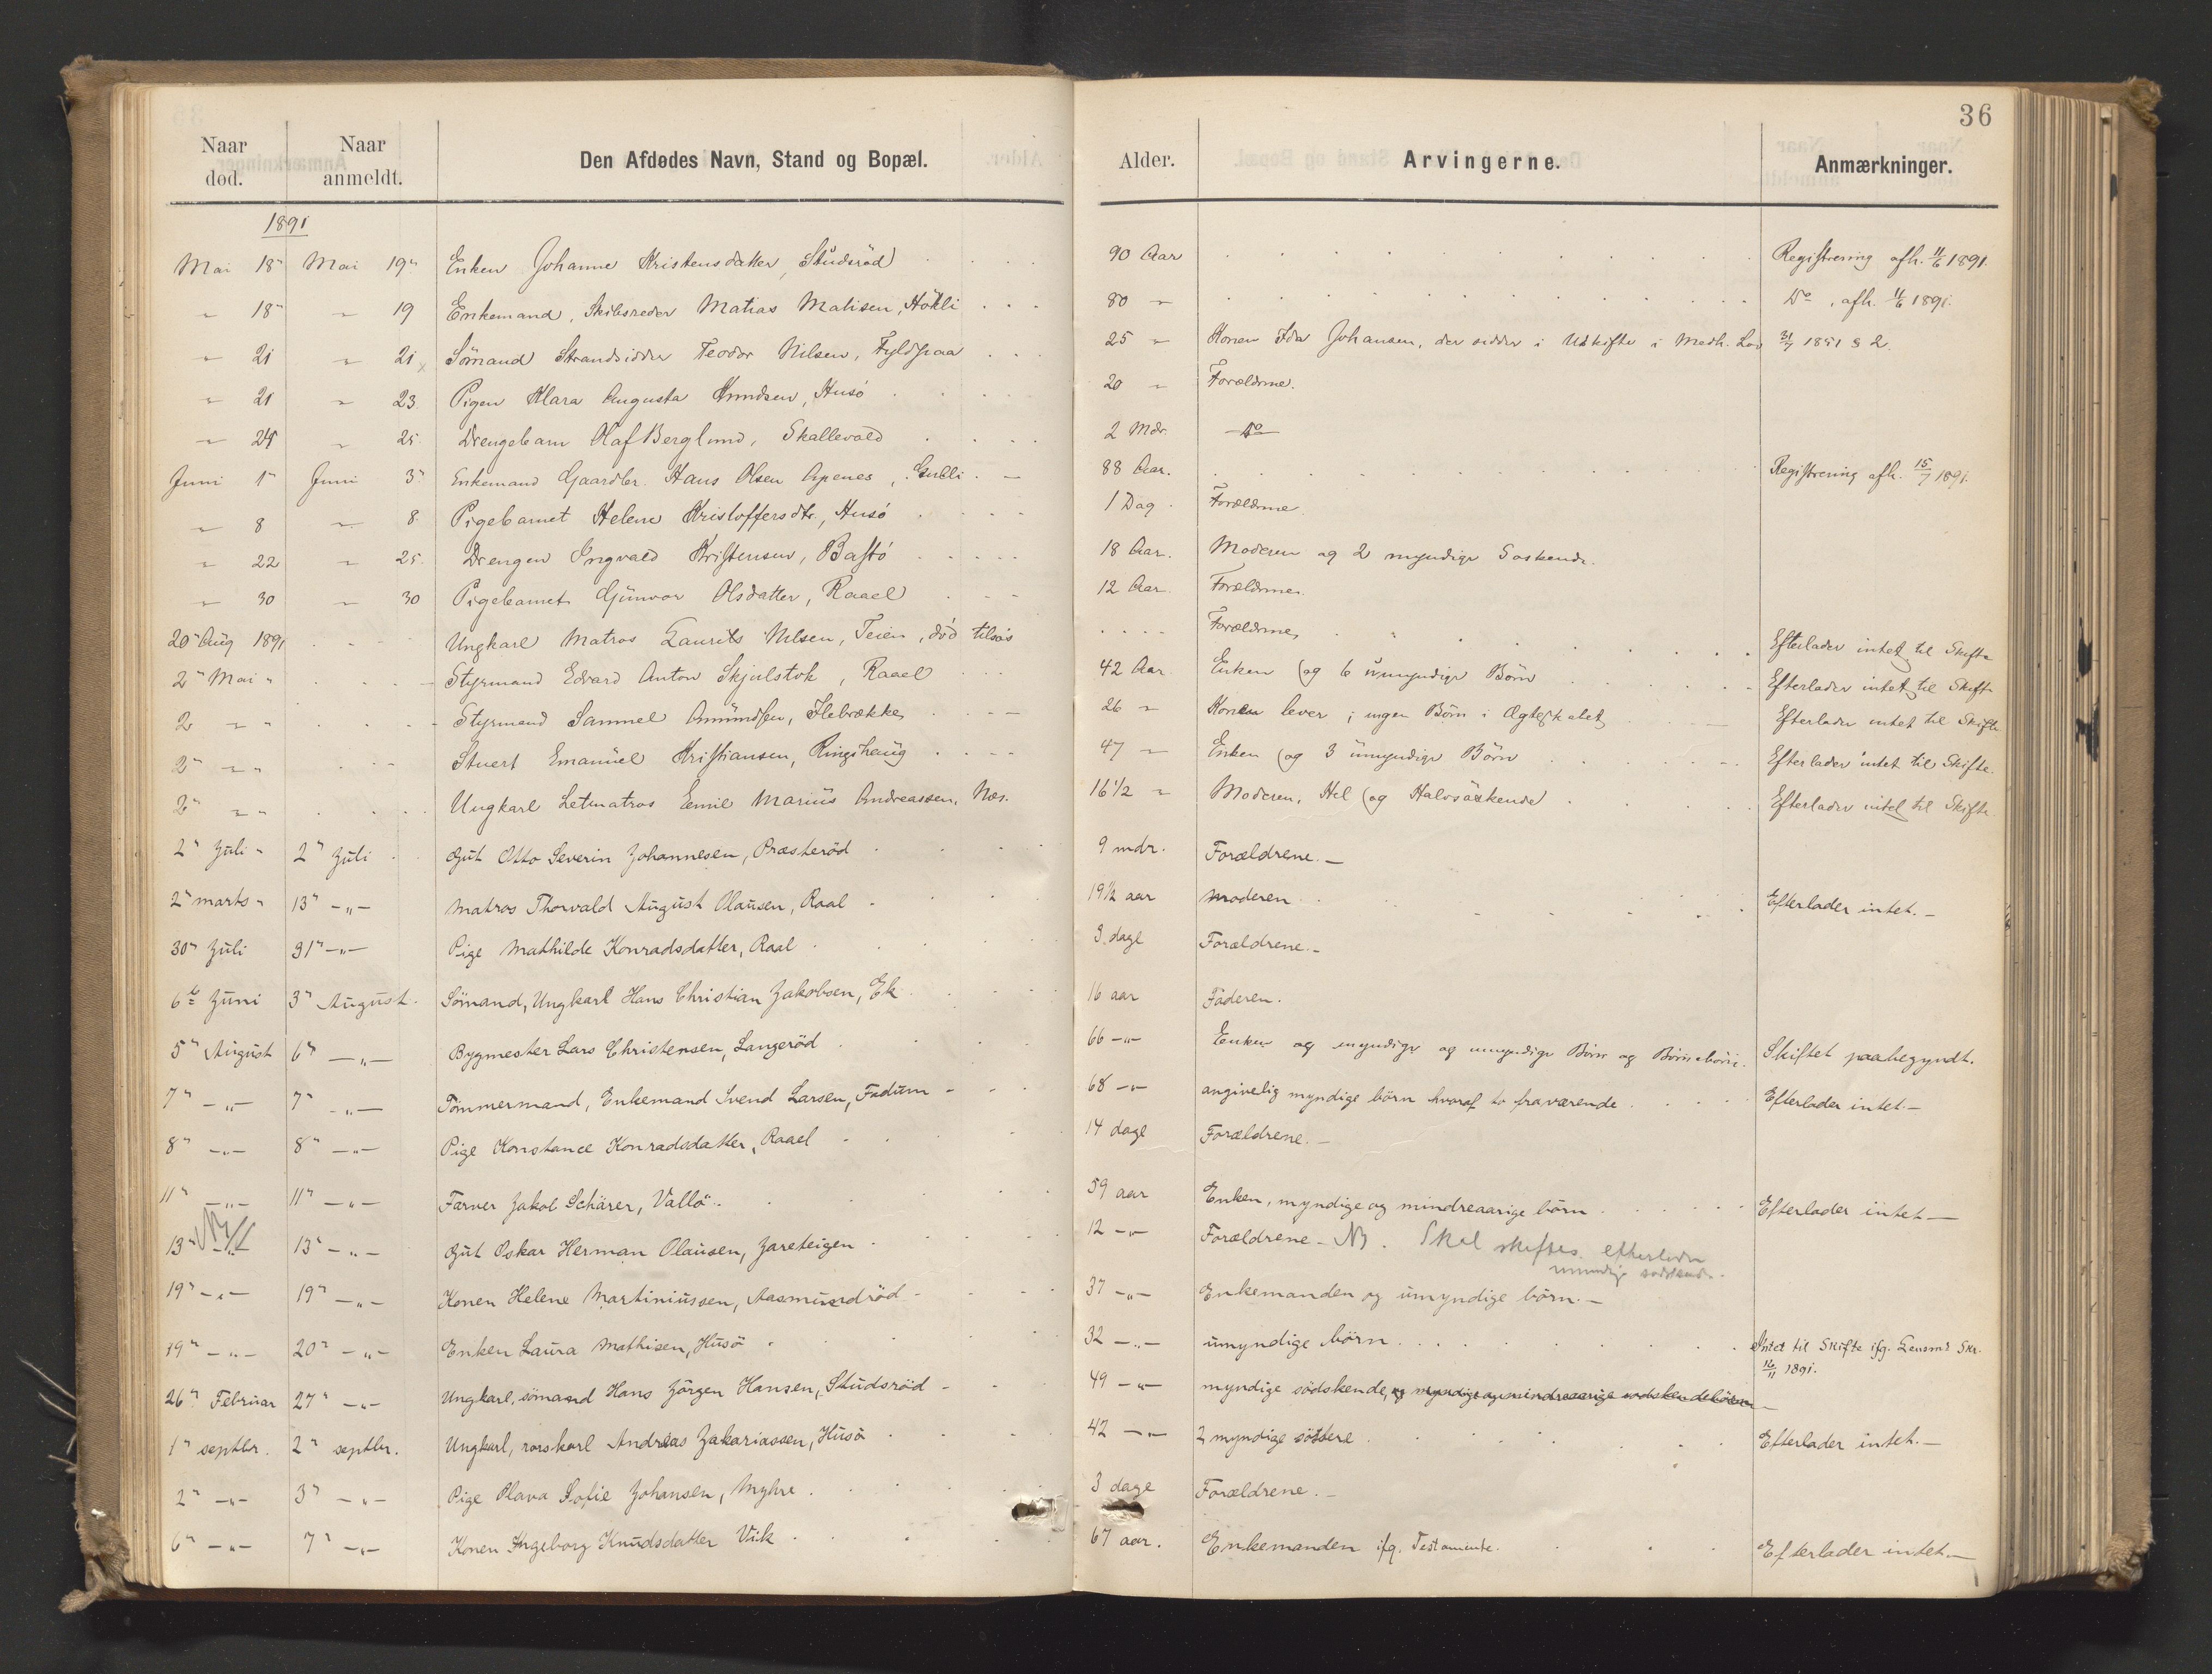 36
Naar død. Naar anmeldt. Den Afdødes Navn, Stand og Bopæl. Alder. Arvingerne. Anmærkninger.
1891
Mai 18" Mai 19" Enken Johanne Kristensdatter, Studsröd 90 Aar Registrering afh. 11/6 1891.
" 18" " 19 Enkemand, Skibsreder Matias Matisen, Hökli 80 " Do, afh. 11/6 1891.
" 21 " 21 Sömand Strandsidder Teodor Nilsen, Fyldpaa 25 " Konen Ida Johansen, der sidder i Uskifte i Medh. Lov 31/7 1851 § 2.
" 21 " 23 Pigen Klara Augusta Knudsen, Husö 20 " Forældrene.
" 24 " 25. Drengebarn Olaf Berglund, Skallevold 2 Mdr. Do
Juni 1" Juni 3" Enkemand Gaardbr. Hans Olsen Apenes, Gulli 88 Aar. Registrering afh. 15/7 1891.
" 8 " 8. Pigebarnet Helene Kristoffersdtr., Husö 1 Dag Forældrene
" 22 " 25. Drengen Ingvald Kristensen, Bastö 18 Aar. Moderen og 2 myndige Söskende.
" 30 " 30 Pigebarnet Gunvor Olsdatter, Raael 12 Aar Forældrene.
20" Aug 1891 Ungkarl Matros Laurits Nilsen, Teien, död tilsös Forældrene, Efterlader intet til Skifte
2" Mai " Styrmand Edvard Anton Skjelstok, Raael 42 Aar Enken (og 6 umyndige Börn Efterlader intet til Skifte
2 " " Styrmand Samuel Amundsen, Ilebrække 26 " Konen lever; ingen Börn i Ægteskabet Efterlader intet til Skifte
2" " " Stuert Emanuel Kristiansen, Ringshaug 47 " Enken (og 3 umyndige Börn Efterlader intet til Skifte.
2" " " Ungkarl Letmatros Emil Marius Andreassen, Næs. 16 1/2 " Moderen, Hel (og Halvsöskende Efterlader intet til Skifte
2" Juli " 2" Juli Gut Otto Severin Johannesen, Præsteröd 9 mdr. Forældrene. —
2" marts " 13" —"— Matros Thorvald August Olausen, Raal 19 1/2 aar Moderen Efterlader intet. —
30" Juli 31" —"— Pige Mathilde Konradsdatter, Raal 3 dage Forældrene. —
6te Juni 3" August Sömand, Ungkarl Hans Christian Jakobsen, Ek 16 aar Faderen.
5" August 6" —"— Bygmester Lars Christensen, Langeröd 66 —"— Enken og myndige og umyndige Börn og Börnebörn. Skiftet paabegyndt.
7" —"— 7" —"— Tömmermand, Enkemand Svend Larsen, Fadum 68 —"— angivelig myndige börn hvoraf to fraværende Efterlader intet. —
8" —"— 8" —"— Pige Konstance Konradsdatter, Raael 14 dage Forældrene. —
11" —"— 11" —"— Farver Jakob Schärer, Vallö 59 aar Enken, myndige og mindreaarige börn Efterlader intet —
13" —"— 13" —"— Gut Oskar Herman Olausen, Jareteigen 12 —"— Forældrene — NB. Skal skiftes efterlader
umyndige sødskende.
19" —"— 19" —"— Konen Helene Martiniussen, Aasmundröd 37 —"— Enkemanden og umyndige börn. —
19" —"— 20" —"— Enken Laura Mathisen, Husö 32 —"— umyndige börn Intet til Skifte ifg. Lensmds Skr.
16/11 1891.
26" Februar 27" —"— Ungkarl, sömand Hans Jörgen Hansen, Studsröd 49 —"— myndige södskende, og myndige og mindreaarige sødskendebörn
1" septbr. 2" septbr. Ungkarl, rorskarl Andreas Zakariassen, Husö 42 —"— 2 myndige söstere Efterlader intet. —
2" —"— 3" —"— Pige Olava Sofie Johansen, Myhre 3 dage Forældrene. —
6" —"— 7" —"— Konen Ingeborg Knudsdatter Vik 67 aar. Enkemanden ifg. Testamente. Efterlader intet. —